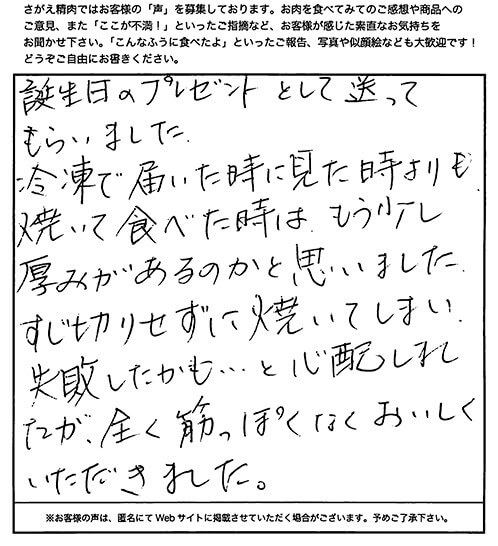 さがえ精肉ではお客様の「声」を募集しております。お肉を食べてみてのご感想や商品への
ご意見、また「ここが不満！」といったご指摘など、お客様が感じた素直なお気持ちを
お聞かせ下さい。「こんなふうに食べたよ」といったご報告、写真や似顔絵なども大歓迎です！
どうぞご自由にお書きください。
誕生日のプレゼントとして送って
もらいました.
冷凍で届いた時に見た時よりも
焼いて食べた時は、もう少し
厚みがあるのかと思いました.
すじ切りせずに焼いてしまい.
失敗したかも…と心配しまし
たが、全く筋っぽくなくおいしく
いただきました。
※お客様の声は、匿名にてWebサイトに掲載させていただく場合がございます。予めご了承下さい。